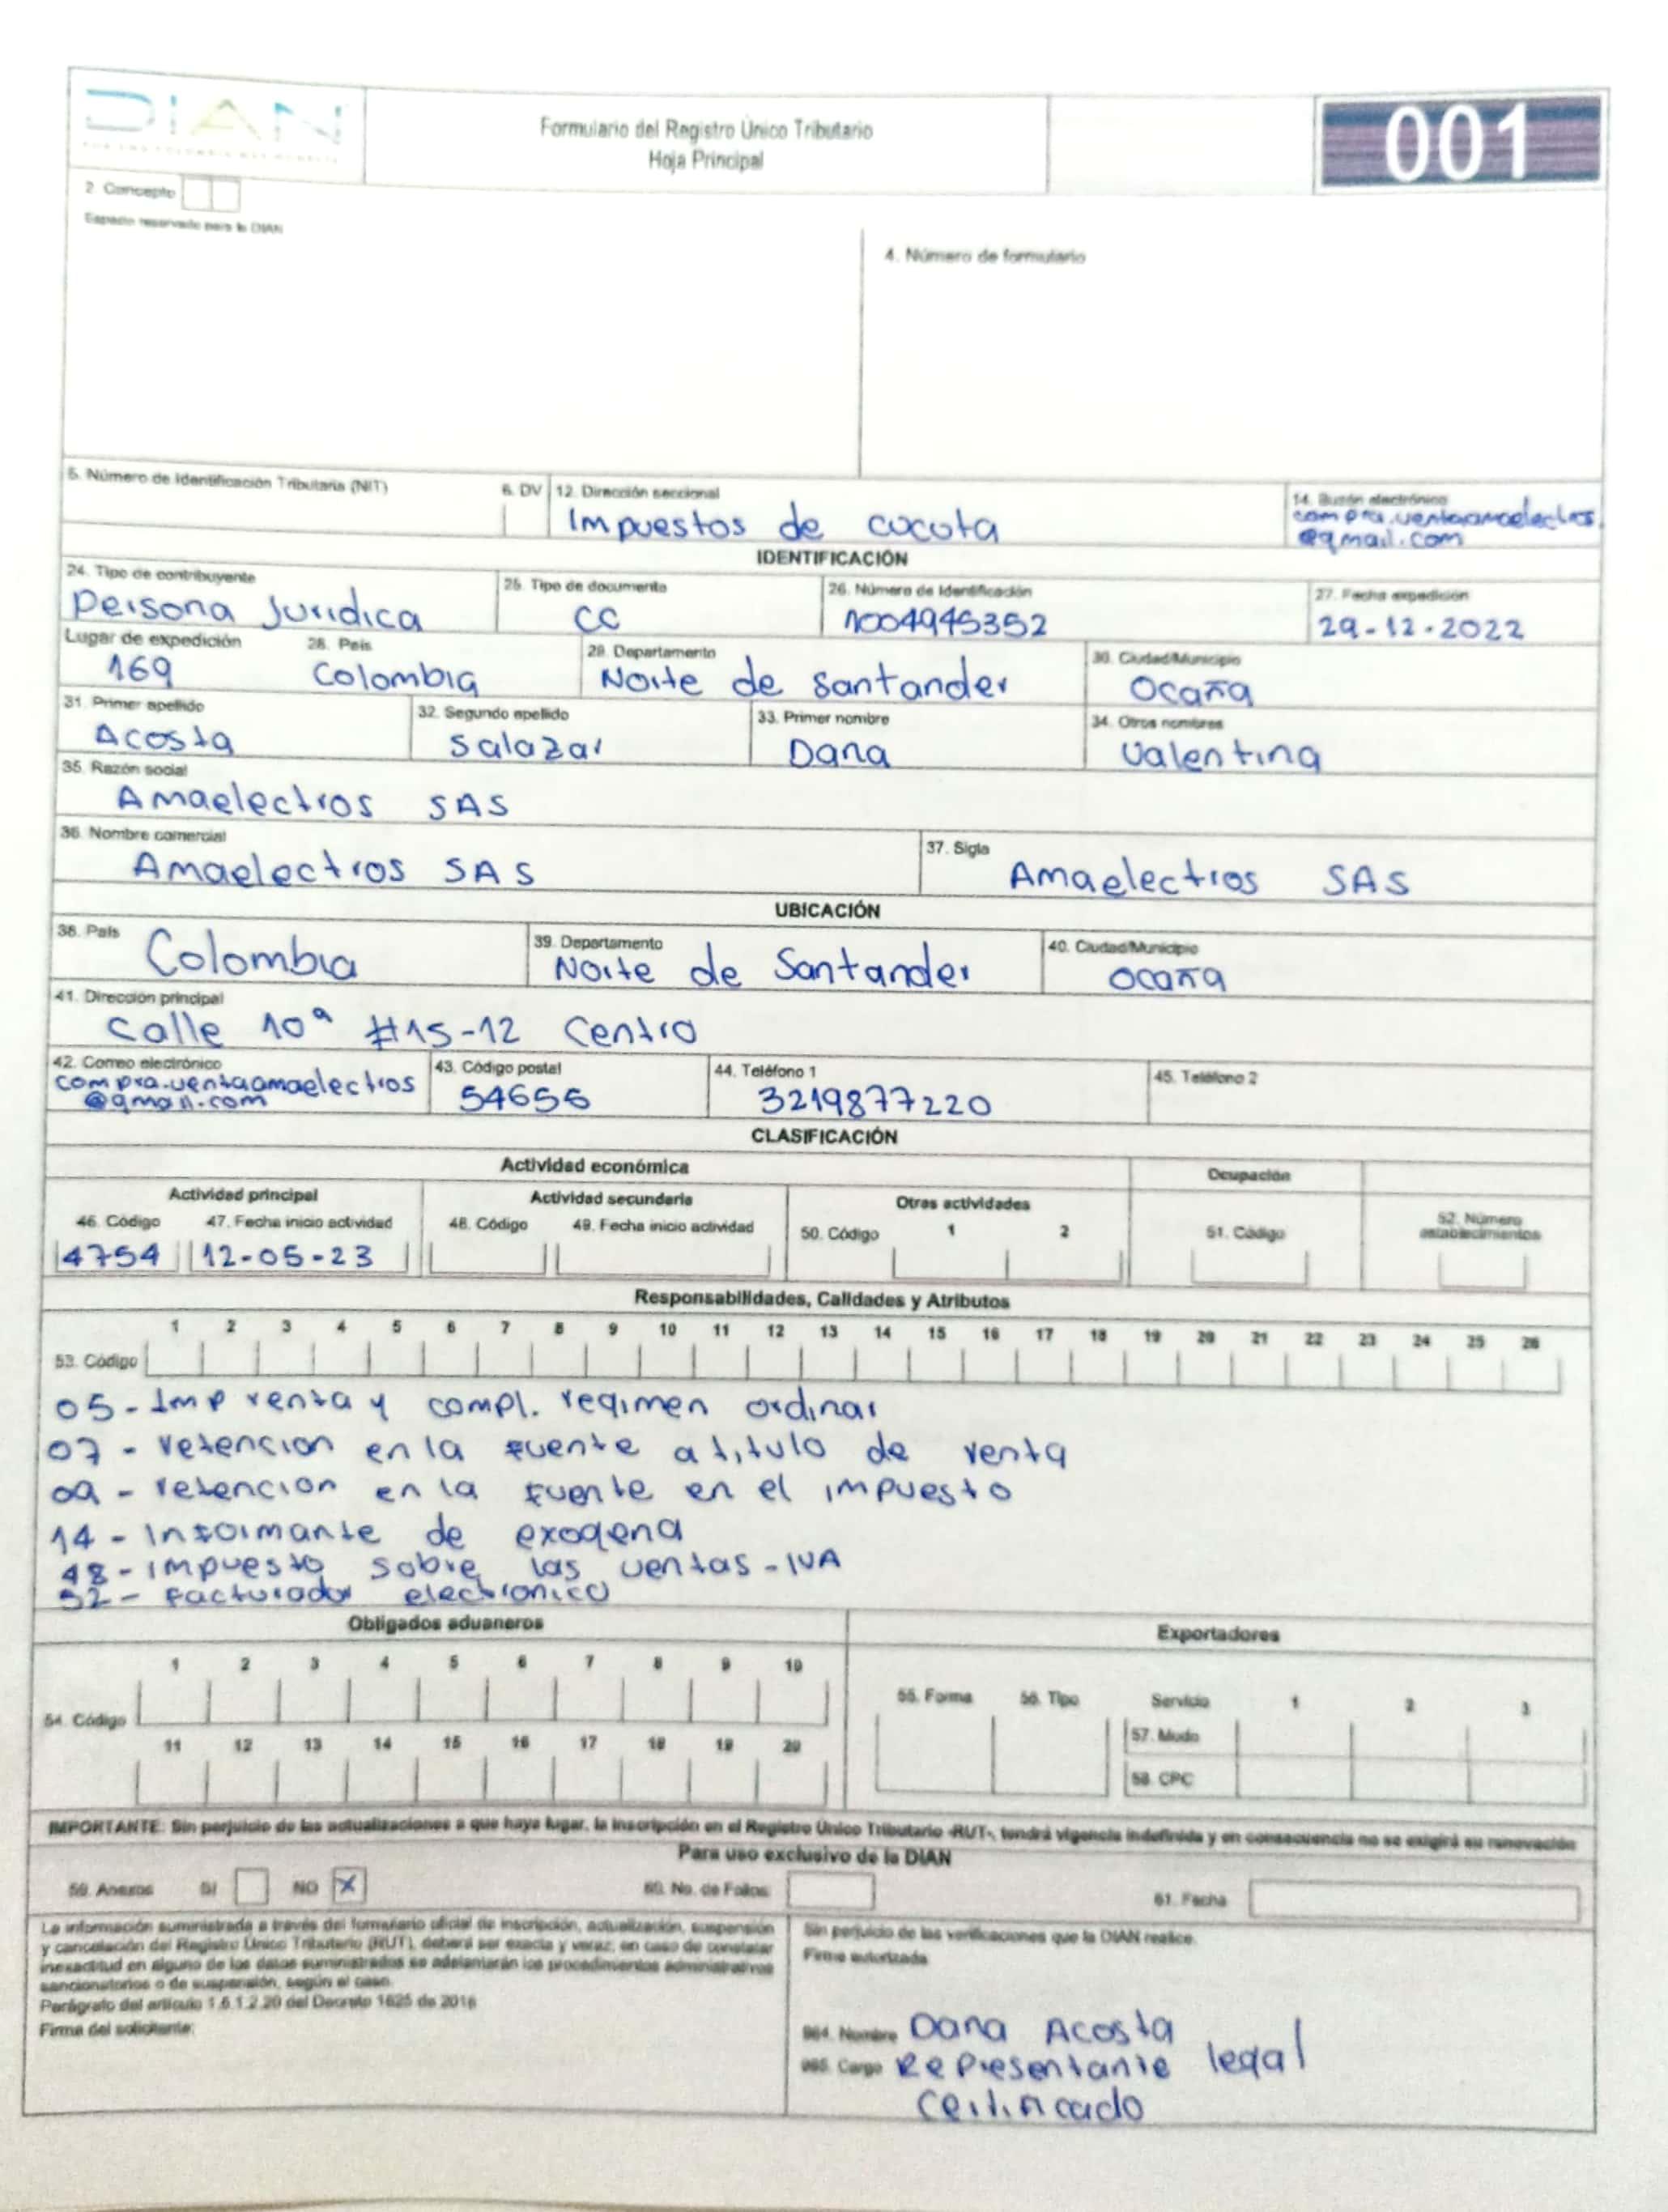 DIAN
Formulario del Registro Único Tributario
Hoja Principal
001
2. Concepto
Espacio reservado para la DIAN
4. Número de formulario
5. Número de Identificación Tributaria (NIT)
6. DV
12. Dirección seccional
Impuestos de cucuta
14. Buzón electrónico
compra.ventaamaelectros
@gmail.com
IDENTIFICACIÓN
24. Tipo de contribuyente
Persona Juridica
25. Tipo de documento
CC
26. Número de Identificación
1004945352
27. Fecha expedición
29-12-2022
Lugar de expedición
169
28. País
Colombia
29. Departamento
Norte de santander
30. Ciudad/Municipio
Ocaña
31. Primer apellido
Acosta
32. Segundo apellido
Salazar
33. Primer nombre
Dana
34. Otros nombres
Valentina
35. Razón social
Amaelectros SAS
36. Nombre comercial
Amaelectros SAS
37. Sigla
Amaelectros SAS
UBICACIÓN
38. País
Colombia
39. Departamento
Norte de Santander
40. Ciudad/Municipio
Ocaña
41. Dirección principal
Calle 10ª #15-12 Centro
42. Correo electrónico
compra.ventaamaelectros
@gmail.com
43. Código postal
54655
44. Teléfono 1
3219877220
45. Teléfono 2
CLASIFICACIÓN
Actividad económica
Ocupación
Actividad principal
Actividad secundaria
Otras actividades
46. Código
47. Fecha inicio actividad
48. Código
49. Fecha inicio actividad
50. Código
1 2
51. Código
52. Número establecimientos
4754
12-05-23
Responsabilidades, Calidades y Atributos
1 2 3 4 5 6 7 8 9 10 11 12 13 14 15 16 17 18 19 20 21 22 23 24 25 26
53. Código
05 - Imp renta y compl. regimen ordinar
07 - retencion en la fuente a titulo de renta
09 - retencion en la fuente en el impuesto
14 - Informante de exogena
48 - impuesto sobre las ventas - IVA
52 - Facturador electronico
Obligados aduaneros
Exportadores
1 2 3 4 5 6 7 8 9 10
54. Código
11 12 13 14 15 16 17 18 19 20
55. Forma
56. Tipo
Servicio 1 2 3
57. Modo
58. CPC
IMPORTANTE: Sin perjuicio de las actualizaciones a que haya lugar, la inscripción en el Registro Único Tributario -RUT-, tendrá vigencia indefinida y en consecuencia no se exigirá su renovación
Para uso exclusivo de la DIAN
59. Anexos SI NO X
60. No. de Folios:
61. Fecha
La información suministrada a través del formulario oficial de inscripción, actualización, suspensión
y cancelación del Registro Único Tributario (RUT), deberá ser exacta y veraz; en caso de constatar
inexactitud en alguno de los datos suministrados se adelantarán los procedimientos administrativos
sancionatorios o de suspensión, según el caso.
Parágrafo del artículo 1.6.1.2.20 del Decreto 1625 de 2016
Firma del solicitante:
Sin perjuicio de las verificaciones que la DIAN realice.
Firma autorizada
984. Nombre Dana Acosta
985. Cargo Representante legal
Certificado